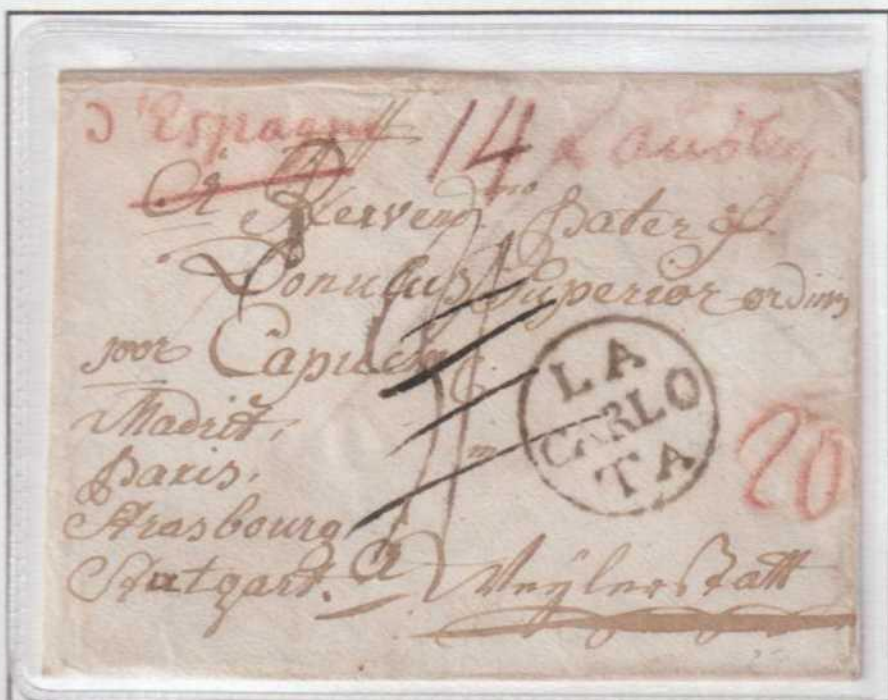 d'Espagne 14 x
A Reverend mo Pater
Donulus Superior ordinis
Capucin
LA
CARLO
TA
20
Madrit,
Paris,
Strasbourg
Stutgart. a Weylerstatt